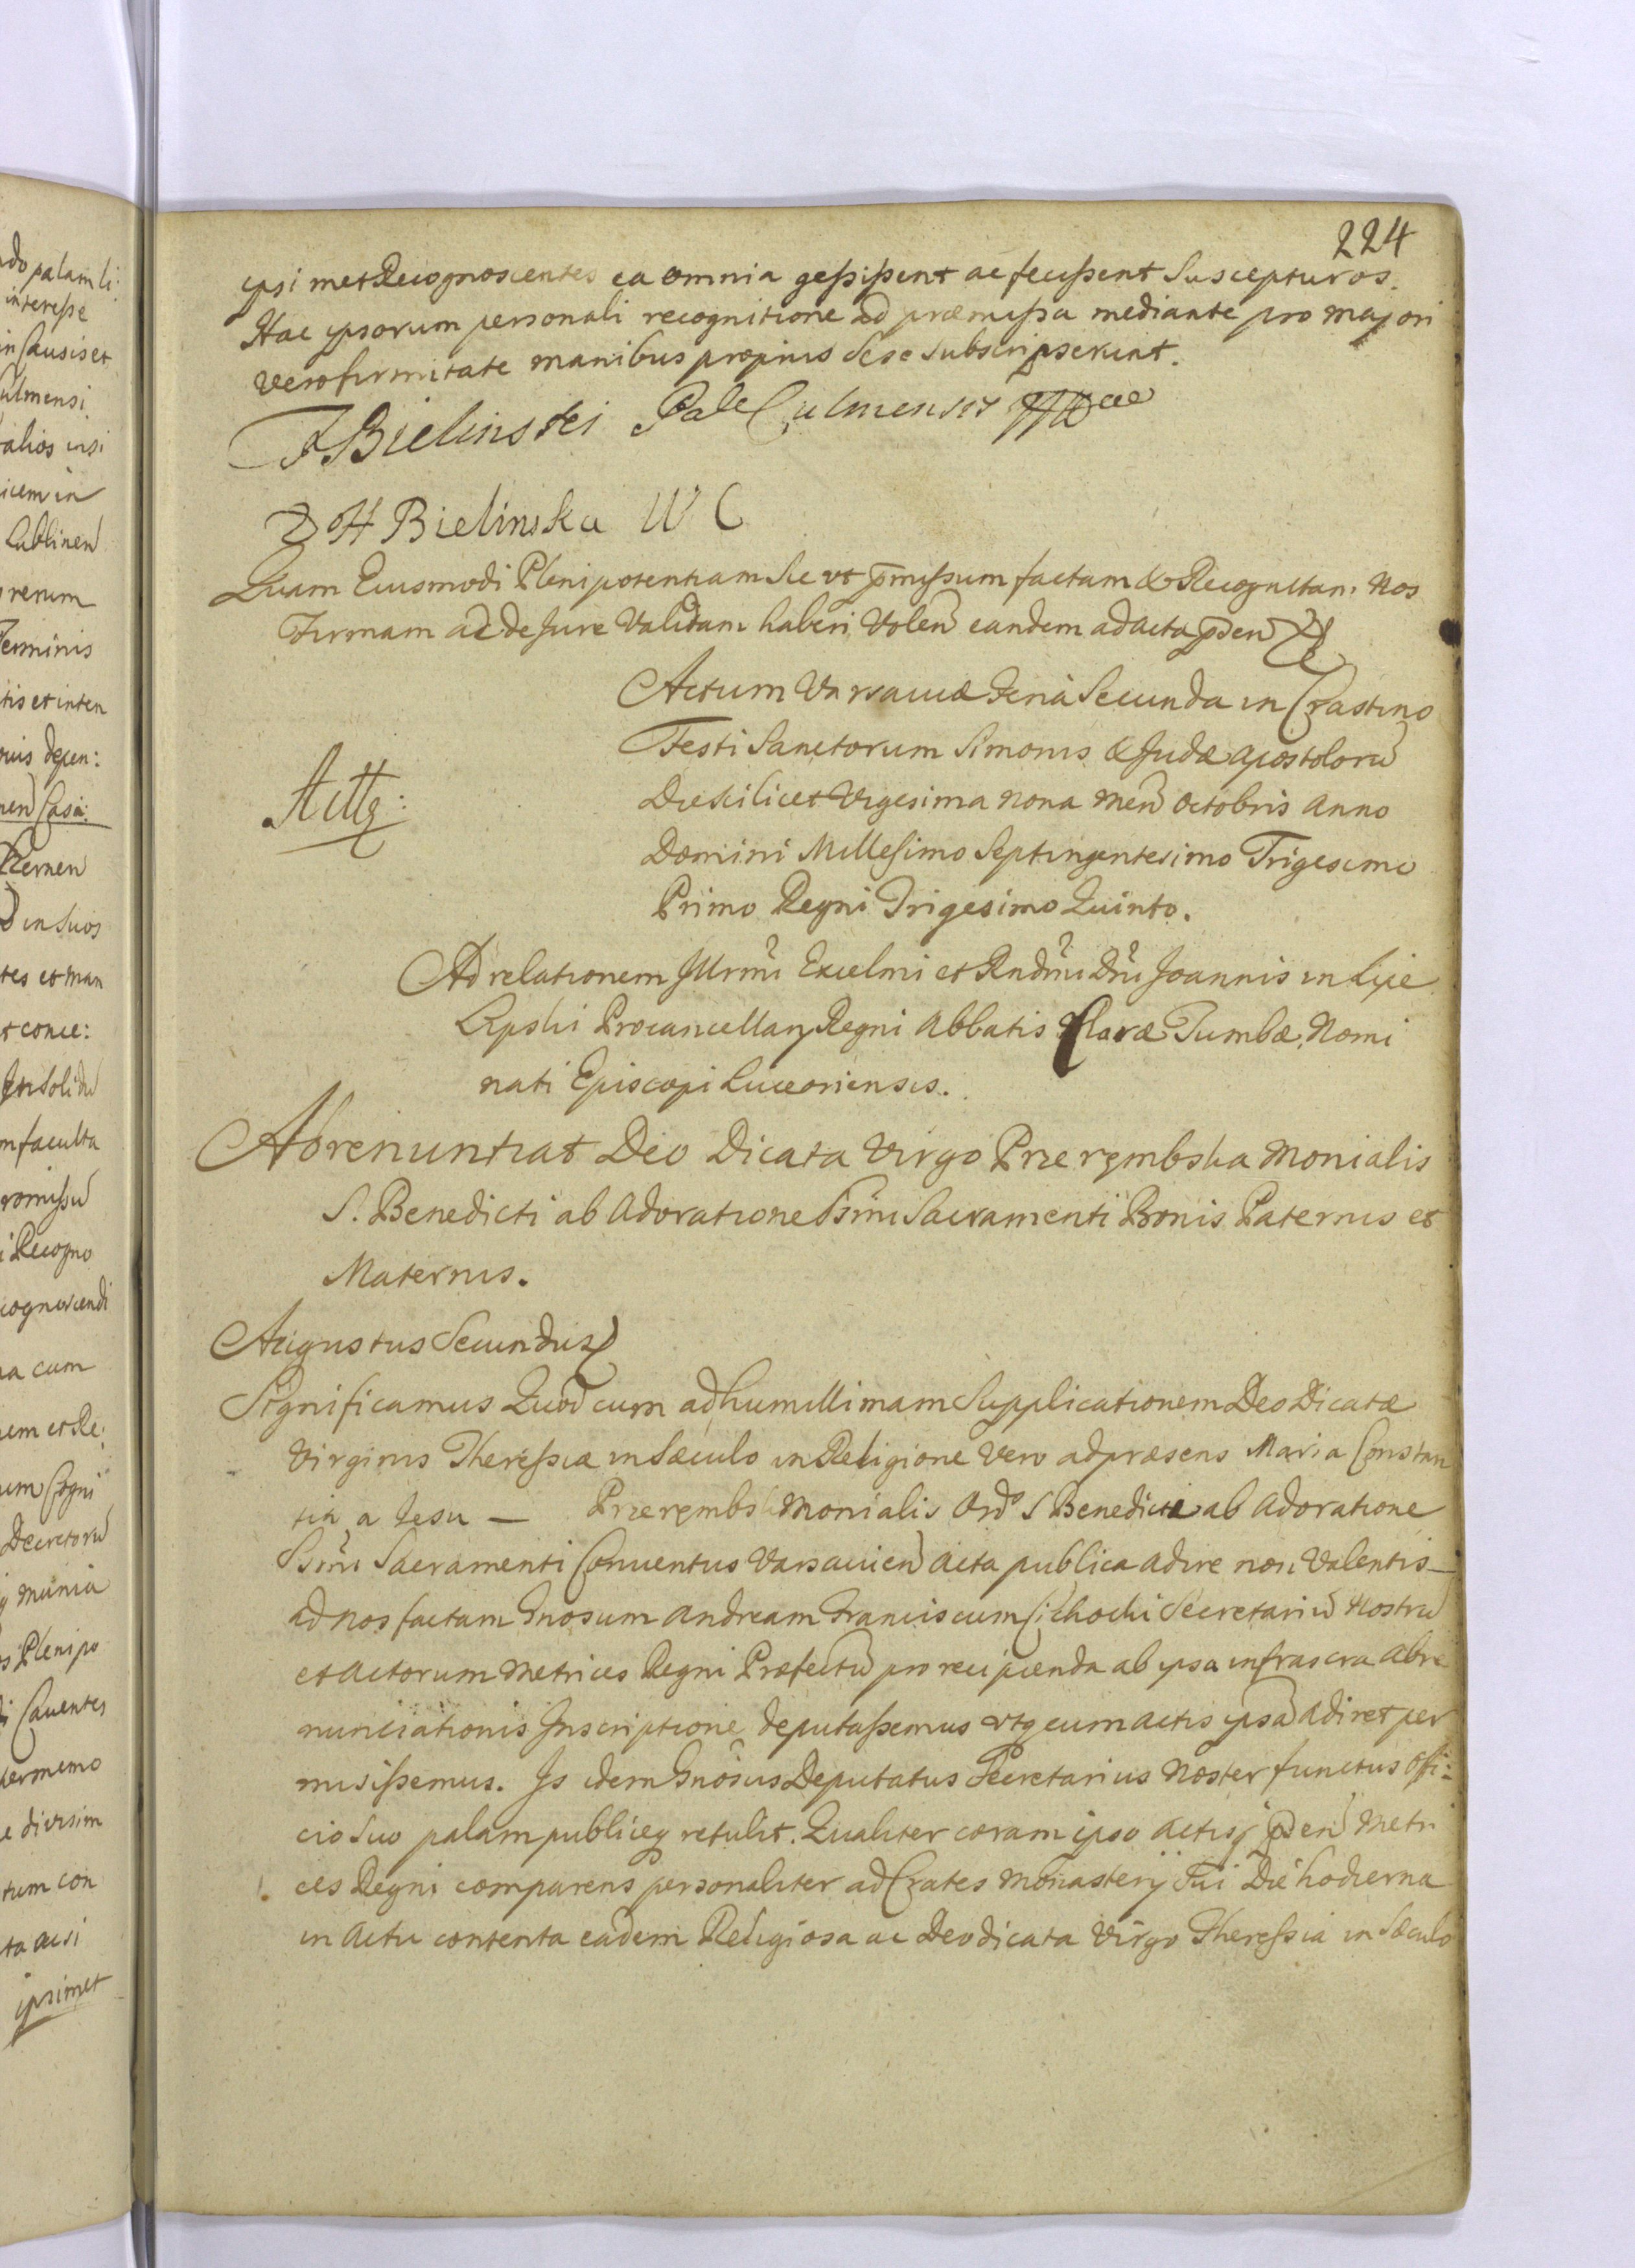 224
ipsi met Recognoscentes ea omnia gessissent ac fecissent Suscepturos.
Hac ipsorum personali recognitione ad præmissa mediante pro majori
vero firmitate manibus propriis Sese Subscripserunt.
FBielinski Pal Culmensis
H Bielinska W C
Quam Eiusmodi Plenipotentiam Sic ut p̄missum factam & Recognitam. Nos
Firmam ac de Jure Validam haberi Volen eandem ad acta p̄sen
Actum Varsaviæ Feria Secunda in Crastino
Festi Sanctorum Simonis & Judæ apostolorū
Die scilicet Vigesima nona Men Octobris Anno
Actq:
Domini Millesimo Septingentesimo Trigesimo
Primo Regni Trigesimo Quinto.
Ad relationem Jllrmi Excelmi et Rndmi Dni Joannis in Lipe
Lipski Procancellarij Regni Abbatis Claræ Tumbæ, Nomi
nati Episcopi Luceoriensis.
Abrenuntiat Deo Dicata Virgo Przerembska Monialis
S. Benedicti ab Adoratione Ssmi Sacramenti Bonis Paternis et
Maternis.
Augustus Secundus
Significamus Quod cum ad humillimam Supplicationem Deo Dicatæ
Virginis Theressiæ in Sæculo in Religione Vero ad præsens Maria Constan
tia a Jesu — Przerembsk Monialis Ord S Benedicti ab Adoratione
Ssmi Sacramenti Conventus Varsavien acta publica adire non Valentis —
ad nos factam Gnosum Andream Franciscum Cichocki Secretariū Nostrū
et Actorum Metrices Regni Præfectū pro recipienda ab ipsa infrascra Abre
nunciationis Inscriptione deputassemus utq eum actis ipsa adiret per
misissemus. Js idem Gnosus Deputatus Secretarius Noster functus offi:
cio Suo palam publiceq retulit. Qualiter coram ipso actisq p̄sen Metri
ces Regni comparens personaliter ad Crates Monasterij Sui Die hodierna
in Actu contenta eadem Religiosa ac Deo dicata Virgo Theressia in Sæculo